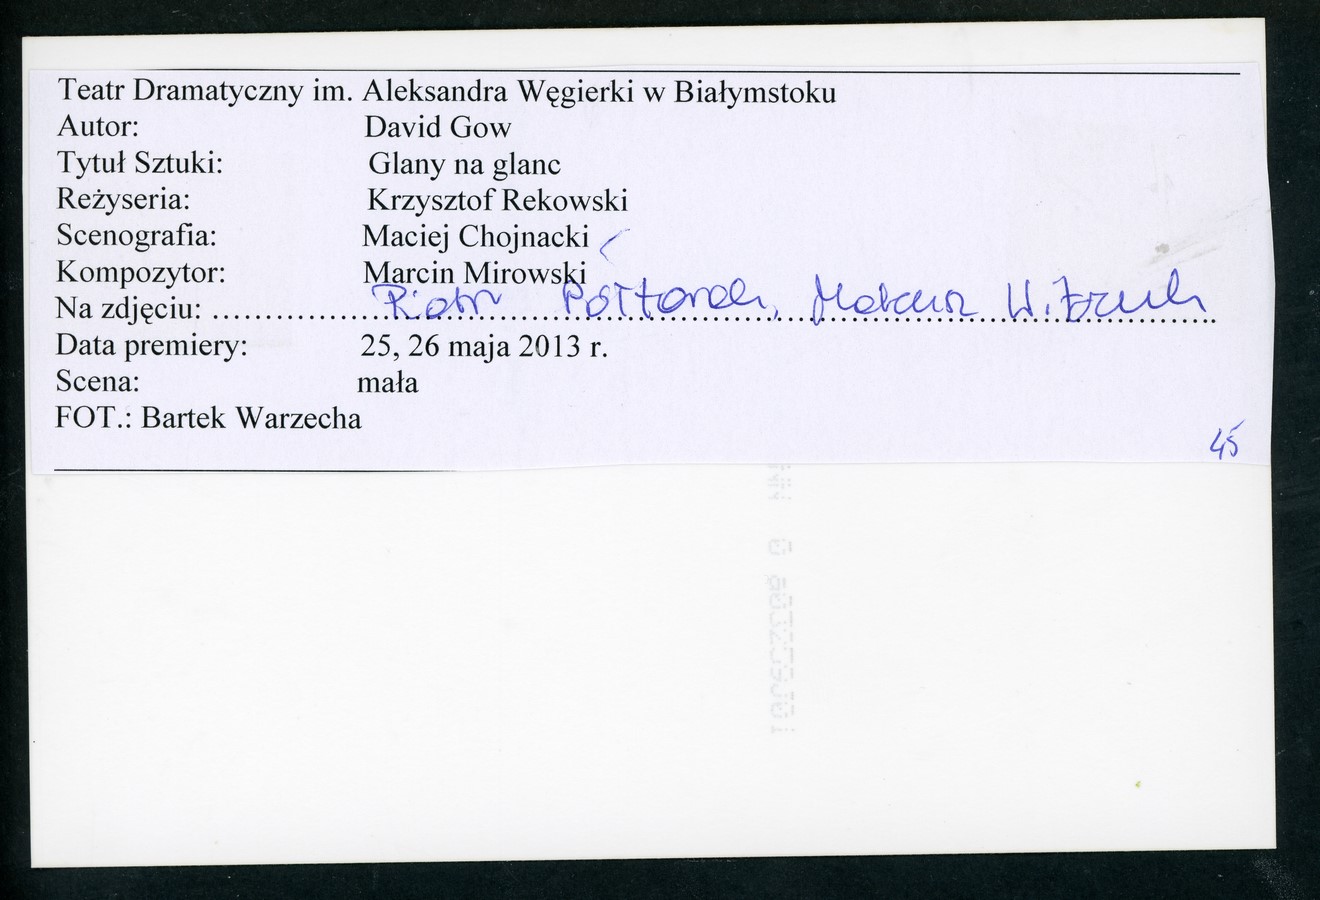 Teatr Dramatyczny im. Aleksandra Węgierki w Białymstoku
Autor: David Gow
Tytuł Sztuki: Glany na glanc
Reżyseria: Krzysztof Rekowski
Scenografia: Maciej Chojnacki
Kompozytor: Marcin Mirowski
Na zdjęciu: Piotr Półtorak, Mateusz Witczuk
Data premiery: 25, 26 maja 2013 r.
Scena: mała
FOT.: Bartek Warzecha
45